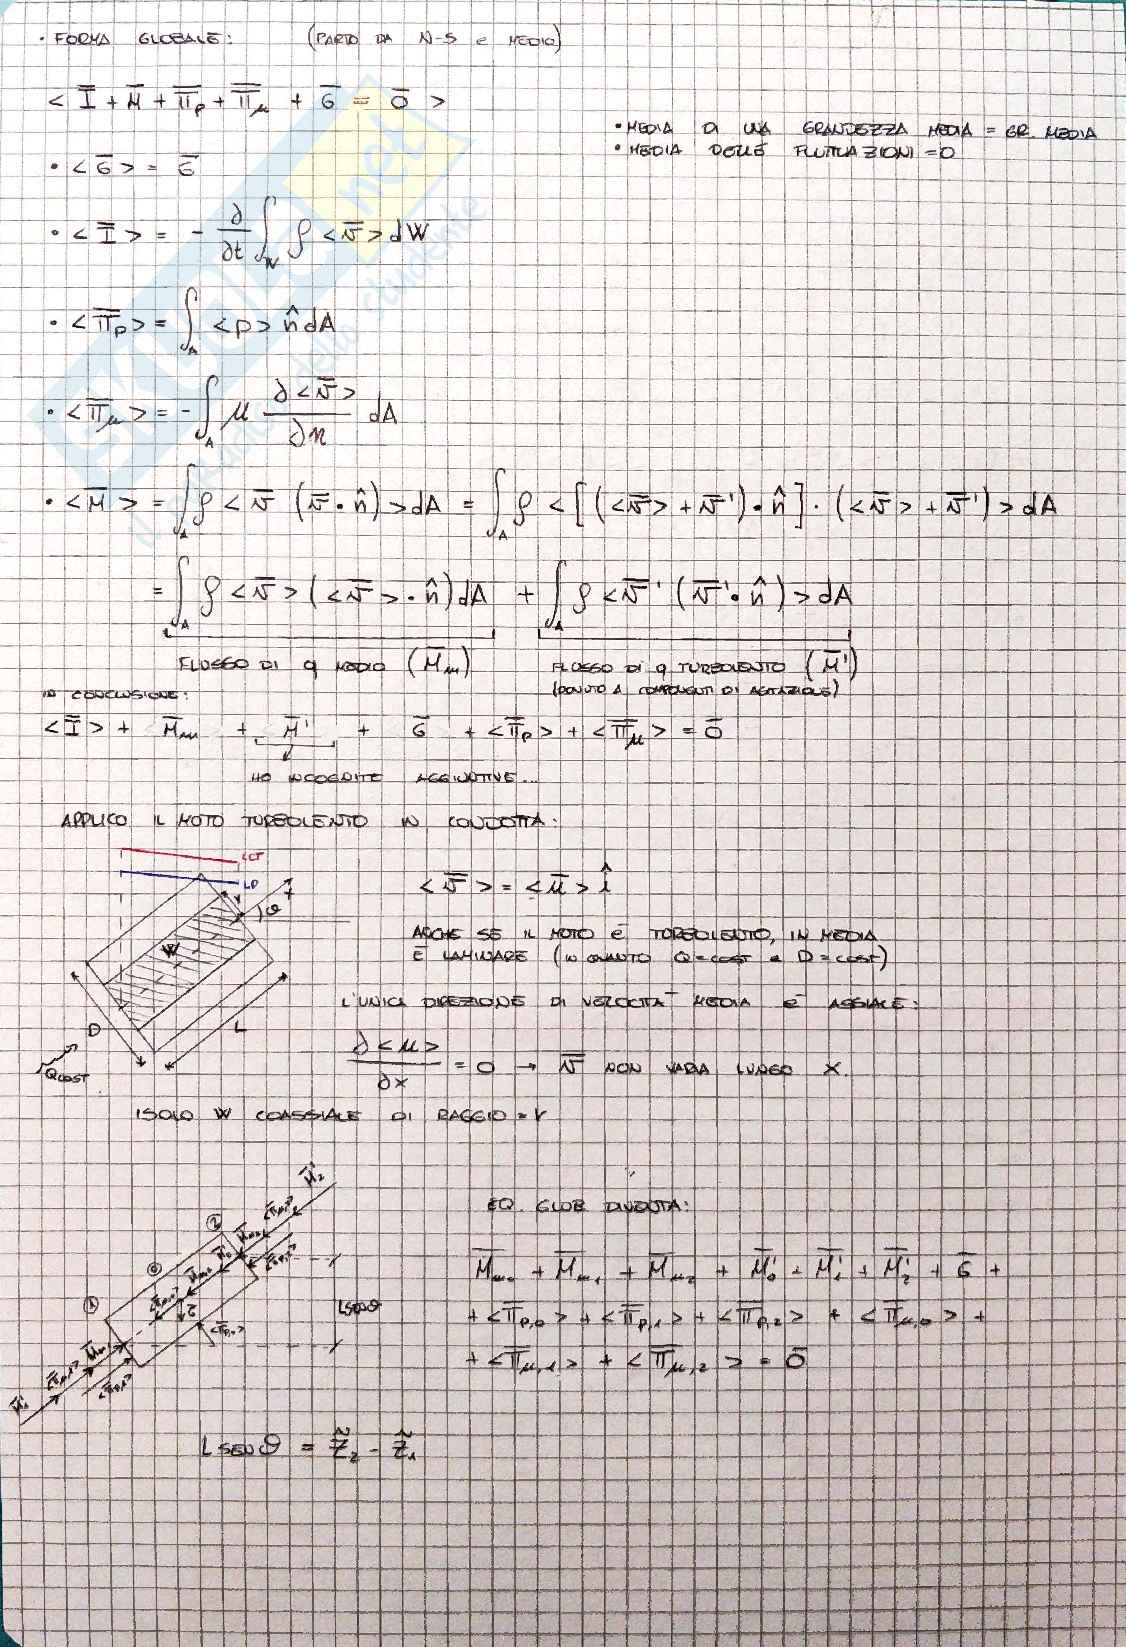 • FORMA GLOBALE: (PARTO DA N-S e MEDIO)
< Ī + M̄ + Π̄p + Π̄μ + Ḡ = 0̄ >
• MEDIA DI UNA GRANDEZZA MEDIA = GR. MEDIA
• MEDIA DELLE FLUTTUAZIONI = 0
• < Ḡ > = Ḡ
• < Ī > = - ∂/∂t ∫W ρ < v̄ > dW
• < Π̄p > = ∫A < p > n̂ dA
• < Π̄μ > = - ∫A μ ∂< v̄ >/∂n dA
• < M̄ > = ∫A ρ < v̄ (v̄ • n̂) > dA = ∫A ρ < [(< v̄ > + v̄') • n̂] · (< v̄ > + v̄') > dA
= ∫A ρ < v̄ > (< v̄ > • n̂) dA + ∫A ρ < v̄' (v̄' • n̂) > dA
FLUSSO DI q MEDIO (M̄m) FLUSSO DI q TURBOLENTO (M̄')
(DOVUTO A COMPONENTI DI AGITAZIONE)
IN CONCLUSIONE:
< Ī > + M̄m + M̄' + Ḡ + < Π̄p > + < Π̄μ > = 0̄
HO INCOGNITE AGGIUNTIVE...
APPLICO IL MOTO TURBOLENTO IN CONDOTTA:
LCT
LP
r
x
θ
W
D
L
Q COST
< v̄ > = < ū > î
ANCHE SE IL MOTO È TURBOLENTO, IN MEDIA
È LAMINARE (IN QUANTO Q=COST e D=COST)
L'UNICA DIREZIONE DI VELOCITÀ MEDIA È ASSIALE:
∂< u >/∂x = 0 → v̄ NON VARIA LUNGO X.
ISOLO W COASSIALE DI RAGGIO = r
EQ. GLOB DIVENTA:
M̄m0 + M̄m1 + M̄m2 + M̄'0 + M̄'1 + M̄'2 + Ḡ +
+ < Π̄p,0 > + < Π̄p,1 > + < Π̄p,2 > + < Π̄μ,0 > +
+ < Π̄μ,1 > + < Π̄μ,2 > = 0̄
M̄'2
②
⓪
①
Ḡ
L SENθ
L SENθ = z̃2 - z̃1